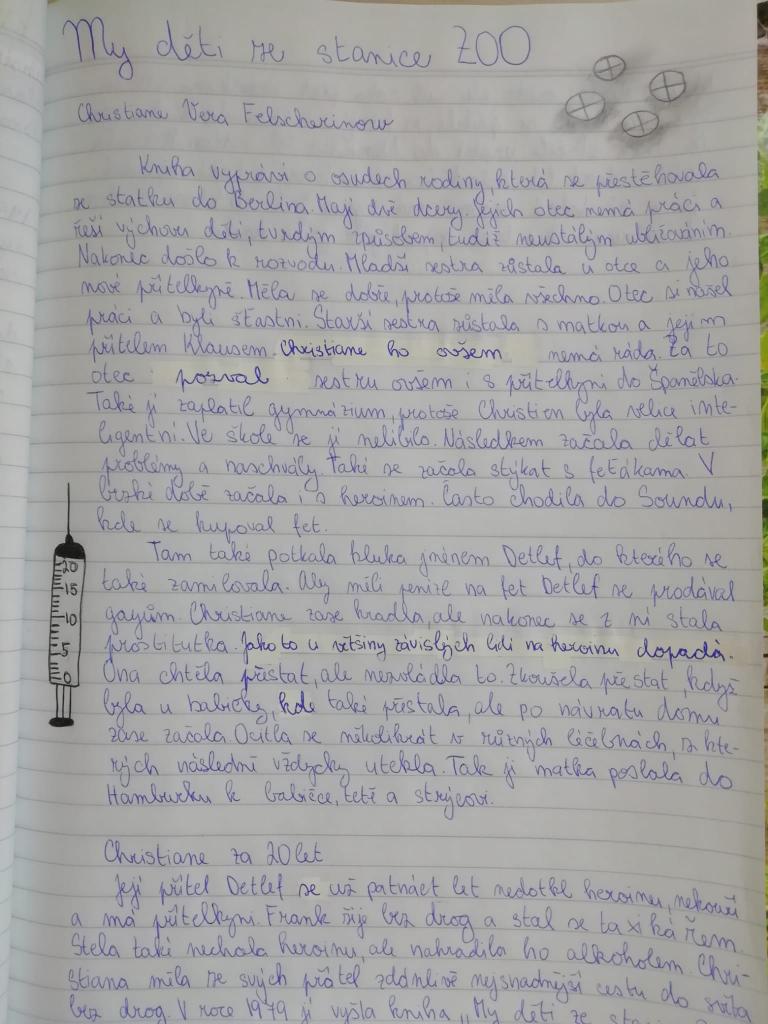 My děti ze stanice ZOO
Christiane Vera Felscherinow
Kniha vypráví o osudech rodiny, která se přestěhovala
ze statku do Berlína. Mají dvě dcery. Jejich otec nemá práci a
řeší výchovu dětí, tvrdým způsobem, tudíž neustálým ubližováním.
Nakonec došlo k rozvodu. Mladší sestra zůstala u otce a jeho
nové přítelkyně. Měla se dobře, protože měla všechno. Otec si našel
práci a byli šťastní. Starší sestra zůstala s matkou a jejím
přítelem Klausem. Christiane ho ovšem nemá ráda. Za to
otec pozval sestru ovšem i s přítelkyní do Španělska.
Také jí zaplatil gymnázium, protože Christien byla velice inte-
ligentní. Ve škole se jí nelíbilo. Následkem začala dělat
problémy a naschvály. Také se začala stýkat s feťákama. V
brzké době začala i s heroinem. Často chodila do Soundu,
kde se kupoval fet.
Tam také potkala kluka jménem Detlef, do kterého se
také zamilovala. Aby měli peníze na fet Detlef se prodával
gayům. Christiane zase kradla, ale nakonec se z ní stala
prostitutka. Jako to u většiny závislých lidí na heroinu dopadá.
Ona chtěla přestat, ale nezvládla to. Zkoušela přestat, když
byla u babičky, kde také přestala, ale po návratu domu
zase začala. Ocitla se několikrát v různých léčebnách, z kte-
rých následně vždycky utekla. Tak jí matka poslala do
Hamburku k babičce, tetě a strýcovi.
20
15
10
5
0
Christiane za 20 let
Její přítel Detlef se už patnáct let nedotkl heroinu, nekouří
a má přítelkyni. Frank žije bez drog a stal se taxikářem.
Stela také nechala heroinu, ale nahradila ho alkoholem. Chri-
stiana měla ze svých přátel zdánlivě nejsnadnější cestu do světa
bez drog. V roce 1979 jí vyšla kniha „My děti ze